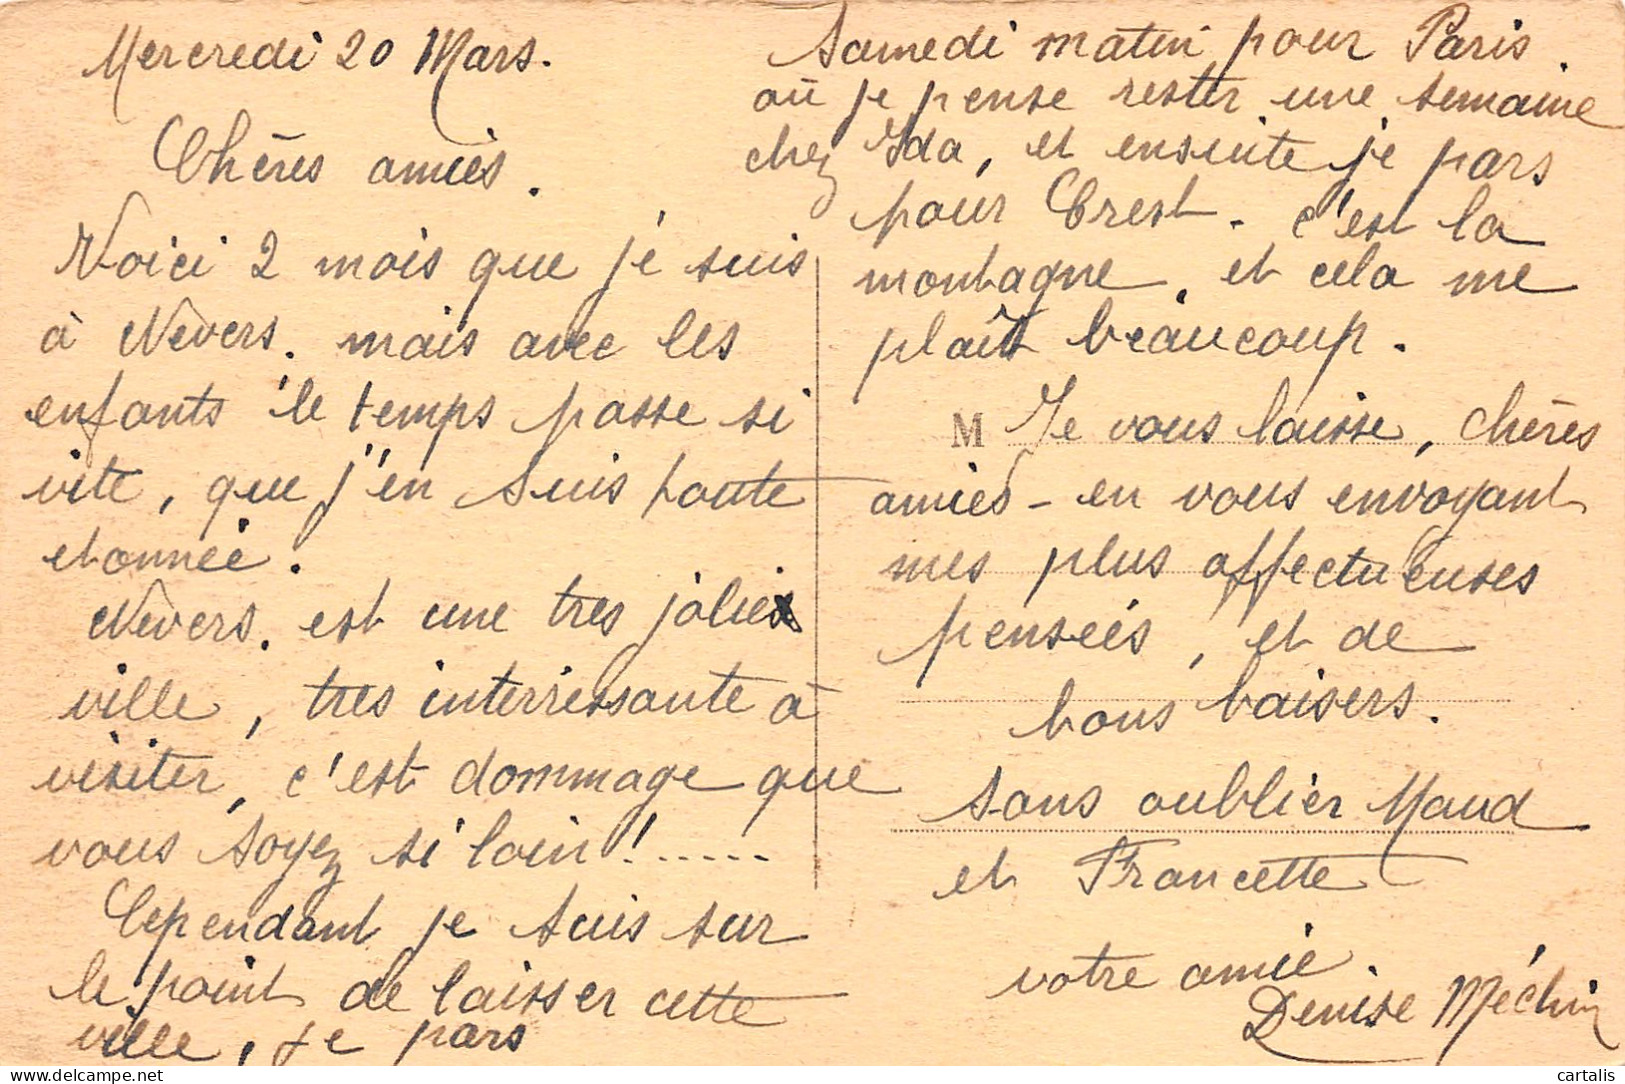 Mercredi 20 Mars.
Chères amies.
Voici 2 mois que je suis
à Nevers. mais avec les
enfants le temps passe si
vite, que j'en suis toute
etonnée.
Nevers. est une tres jolie
ville, tres interressante à
visiter, c'est dommage que
vous soyez si loin!.....
Cependant je suis sur
le point de laisser cette
ville, je pars
Samedi matin pour Paris.
où je pense rester une semaine
chez Ida, et ensuite je pars
pour Crest. c'est la
montagne, et cela me
plaît beaucoup.
M Je vous laisse, chères
amies - en vous envoyant
mes plus affectueuses
pensées, et de
bons baisers.
Sans oublier Maud
et Francette
votre amie.
Denise Méchin
cartalis